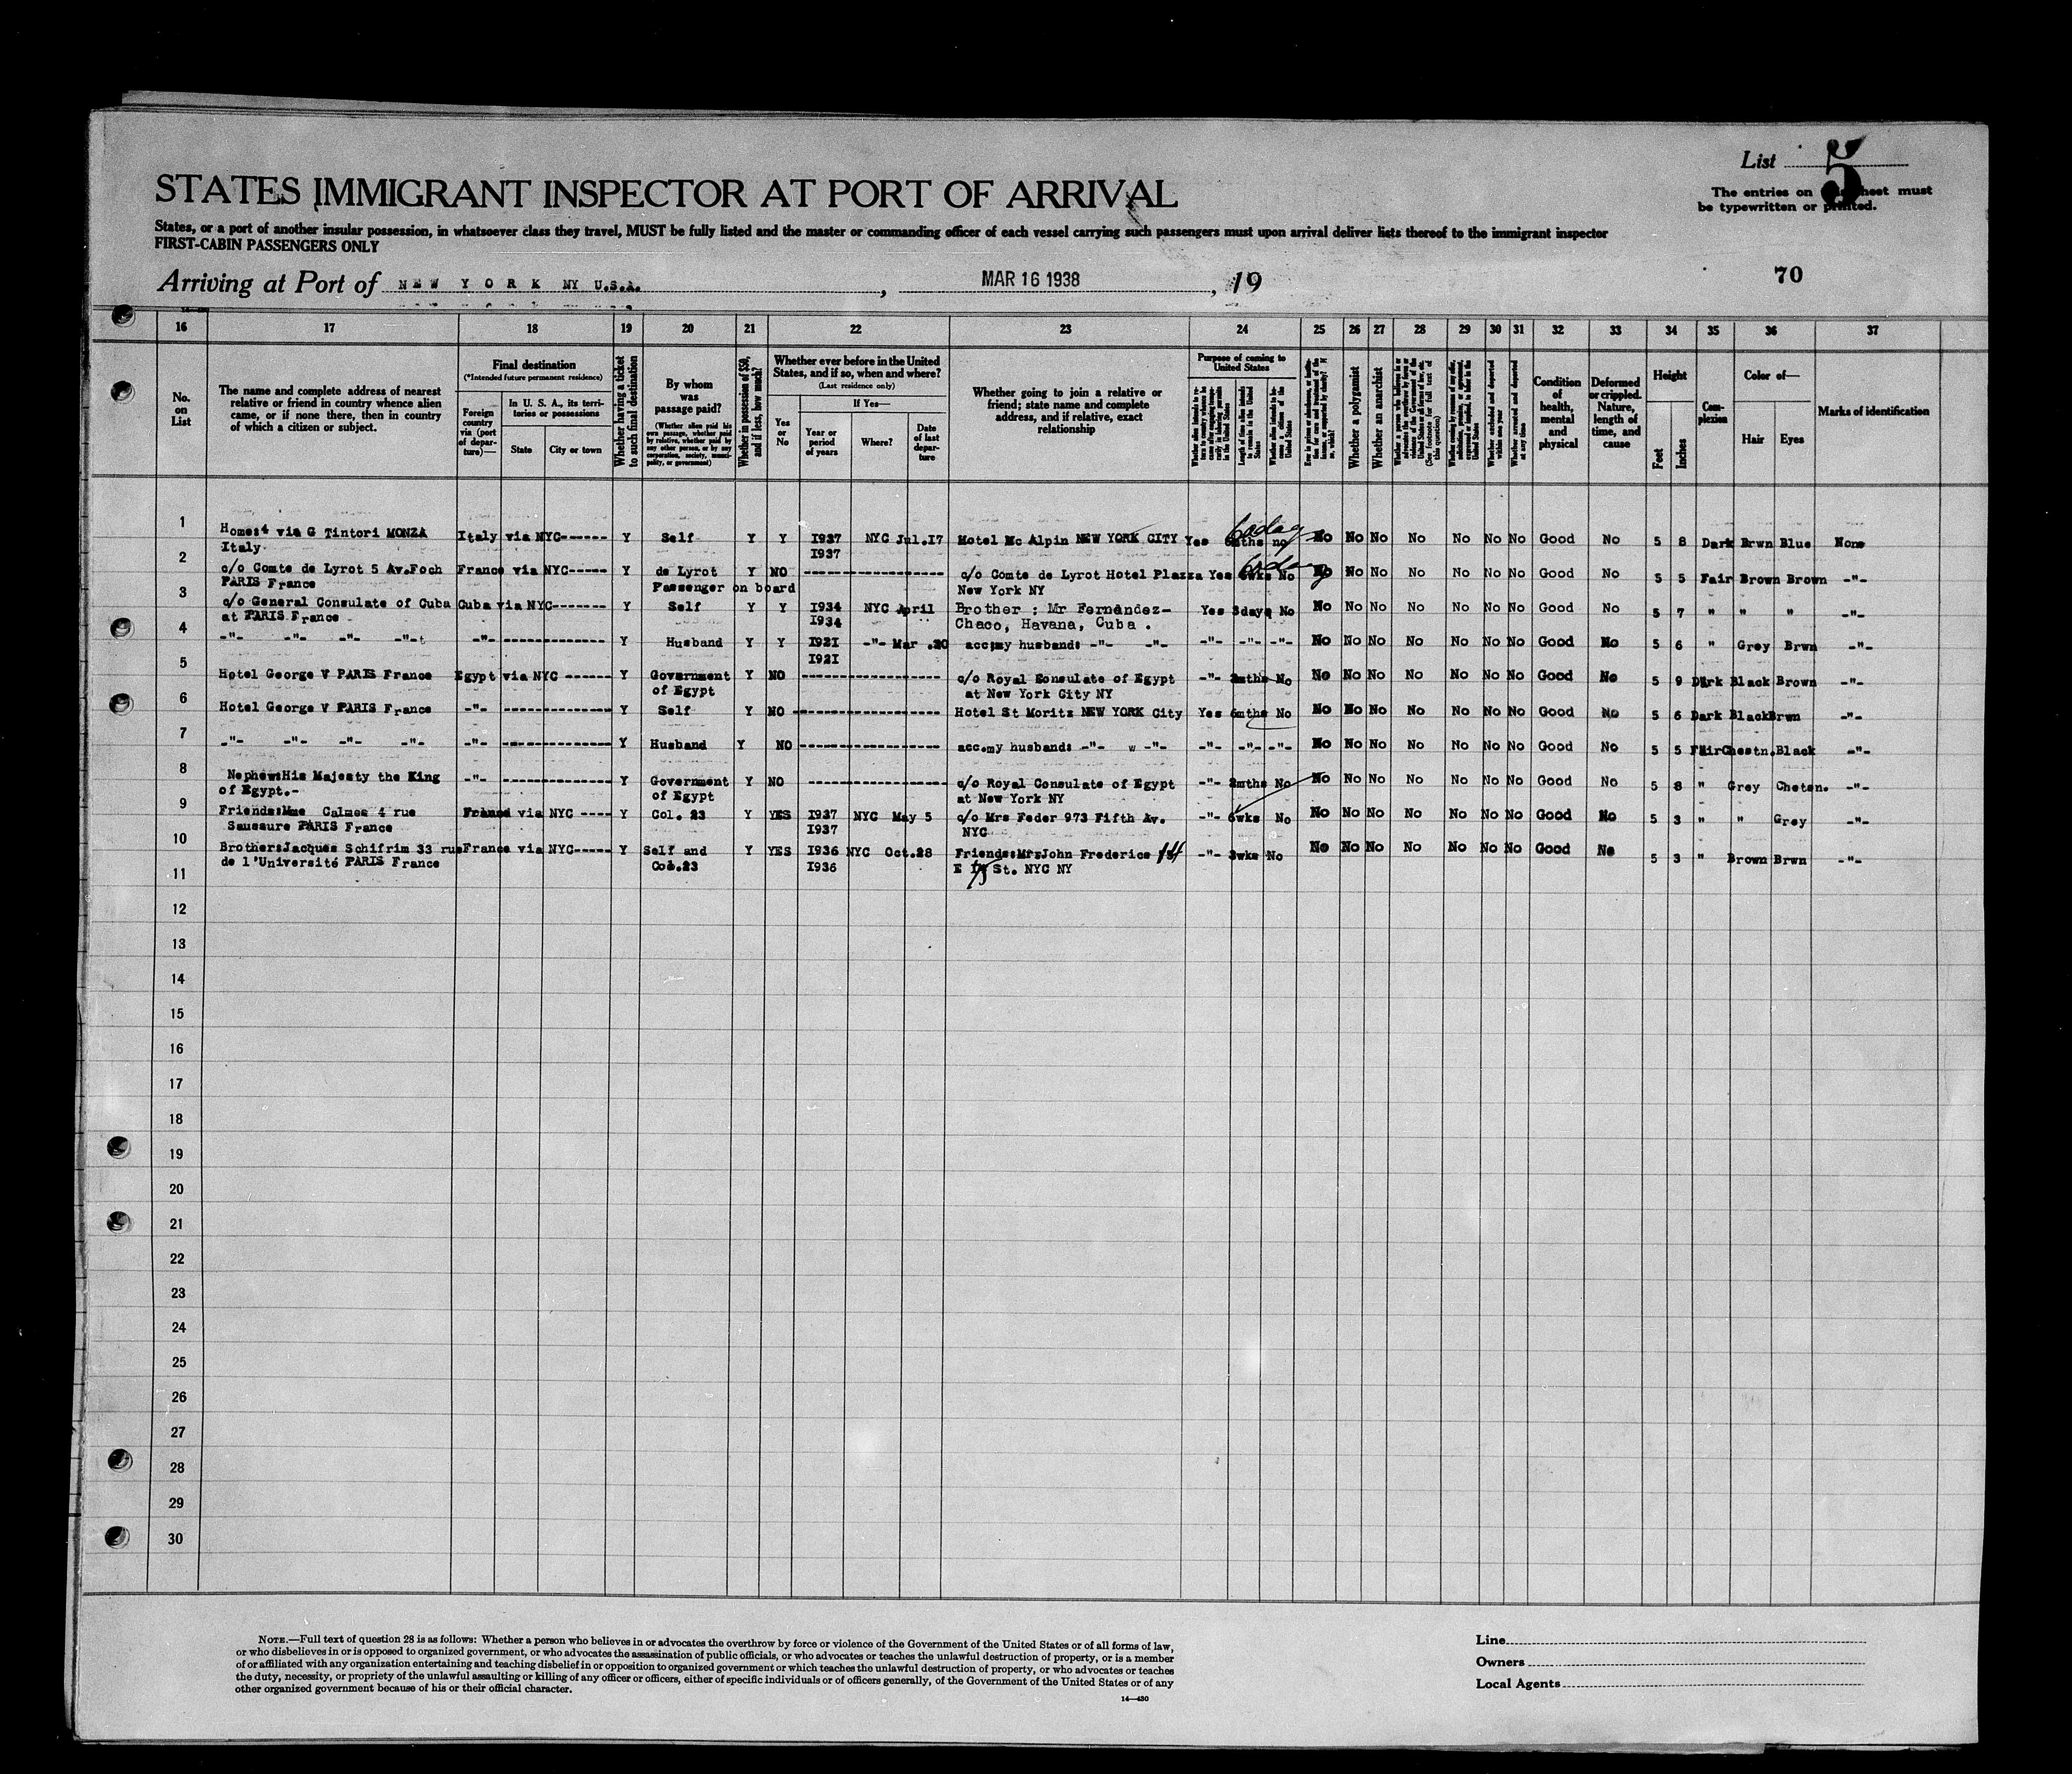 List 5
The entries on sheet must
be typewritten or printed.
STATES IMMIGRANT INSPECTOR AT PORT OF ARRIVAL
States, or a port of another insular possession, in whatsoever class they travel, MUST be fully listed and the master or commanding officer of each vessel carrying such passengers must upon arrival deliver lists thereof to the immigrant inspector
FIRST-CABIN PASSENGERS ONLY
Arriving at Port of NEW YORK NY U.S.A. , MAR 16 1938 , 19
70
16 17 18 19 20 21 22 23 24 25 26 27 28 29 30 31 32 33 34 35 36 37
No.
on
List
The name and complete address of nearest
relative or friend in country whence alien
came, or if none there, then in country
of which a citizen or subject.
Final destination
(*Intended future permanent residence)
Foreign
country
via (port
of depar-
ture)—
In U. S. A., its terri-
tories or possessions
State
City or town
Whether having a ticket
to such final destination
By whom
was
passage paid?
(Whether alien paid his
own passage, whether paid
by relative, whether paid by
any other person, or by any
corporation, society, munici-
pality, or government)
Whether in possession of $50,
and if less, how much?
Whether ever before in the United
States, and if so, when and where?
(Last residence only)
Yes
or
No
If Yes—
Year or
period
of years
Where?
Date
of last
depar-
ture
Whether going to join a relative or
friend; state name and complete
address, and if relative, exact
relationship
Purpose of coming to
United States
Length of time alien intends
to remain in the United
States
Whether alien intends to be-
come a citizen of the
United States
Whether a polygamist
Whether an anarchist
Whether arrested and deported
within one year
Whether arrested and deported
at any time
Condition
of
health,
mental
and
physical
Deformed
or crippled.
Nature,
length of
time, and
cause
Height
Feet
Inches
Com-
plexion
Color of—
Hair
Eyes
Marks of identification
1 Home:4 via G Tintori MONZA Italy via NYC------ Y Self Y Y I937 NYC Jul.I7 Hotel Mc Alpin NEW YORK CITY Yes 6mths no 60 days No No No No No No No Good No 5 8 Dark Brwn Blue None
Italy I937
2 c/o Comte de Lyrot 5 Av.Foch France via NYC----- Y de Lyrot Y NO -------------------- c/o Comte de Lyrot Hotel Plazza Yes 6wks No No No No No No No No Good No 5 5 Fair Brown Brown -"-
PARIS France Passenger on board New York NY
3 c/o General Consulate of Cuba Cuba via NYC------- Y Self Y Y I934 NYC April Brother : Mr Fernandez- Yes 3days No No No No No No No No Good No 5 7 " " " -"-
at PARIS France - I934 Chaco, Havana, Cuba .
4 -"- -"- -"- -"- -"- ------------- Y Husband Y Y I92I -"- Mar .20 acc:my husband: -"- -"- -"- -"- -"- No No No No No No No Good No 5 6 " Grey Brwn -"-
I92I
5 Hotel George V PARIS France Egypt via NYC ------ Y Government Y NO -------------------- c/o Royal Consulate of Egypt -"- 2mths No No No No No No No No Good No 5 9 Dark Black Brown -"-
of Egypt at New York City NY
6 Hotel George V PARIS France -"- ------------- Y Self Y NO -------------------- Hotel St Moritz NEW YORK City Yes 6mths No No No No No No No No Good No 5 6 Dark Black Brwn -"-
7 -"- -"- -"- -"- -"- ------------- Y Husband Y NO -------------------- acc.my husband: -"- w -"- -"- -"- -"- No No No No No No No Good No 5 5 Fair Chestn.Black -"-
8 Nephew:His Majesty the King -"- ------------- Y Government Y NO -------------------- c/o Royal Consulate of Egypt -"- 2mths No No No No No No No No Good No 5 8 " Grey Chstn. -"-
of Egypt.- of Egypt at New York NY
9 Friends:Mme Calmes 4 rue France via NYC ---- Y Col. 23 Y YES I937 NYC May 5 c/o Mrs Feder 973 Fifth Av. -"- 6wks No No No No No No No No Good No 5 3 " " Grey -"-
Saussure PARIS France I937 NYC
10 Brother:Jacques Schifrim 33 rue France via NYC----- Y Self and Y YES I936 NYC Oct.28 Friends:Mr John Frederics 14 -"- 3wks No No No No No No No No Good No 5 3 " Brown Brwn -"-
de l'Université PARIS France Col.23 I936 E St. NYC NY
11
12
13
14
15
16
17
18
19
20
21
22
23
24
25
26
27
28
29
30
NOTE.—Full text of question 28 is as follows: Whether a person who believes in or advocates the overthrow by force or violence of the Government of the United States or of all forms of law,
or who disbelieves in or is opposed to organized government, or who advocates the assassination of public officials, or who advocates or teaches the unlawful destruction of property, or is a member
of or affiliated with any organization entertaining and teaching disbelief in or opposition to organized government or which teaches the unlawful destruction of property, or who advocates or teaches
the duty, necessity, or propriety of the unlawful assaulting or killing of any officer or officers, either of specific individuals or of officers generally, of the Government of the United States or of any
other organized government because of his or their official character.
14—430
Line
Owners
Local Agents